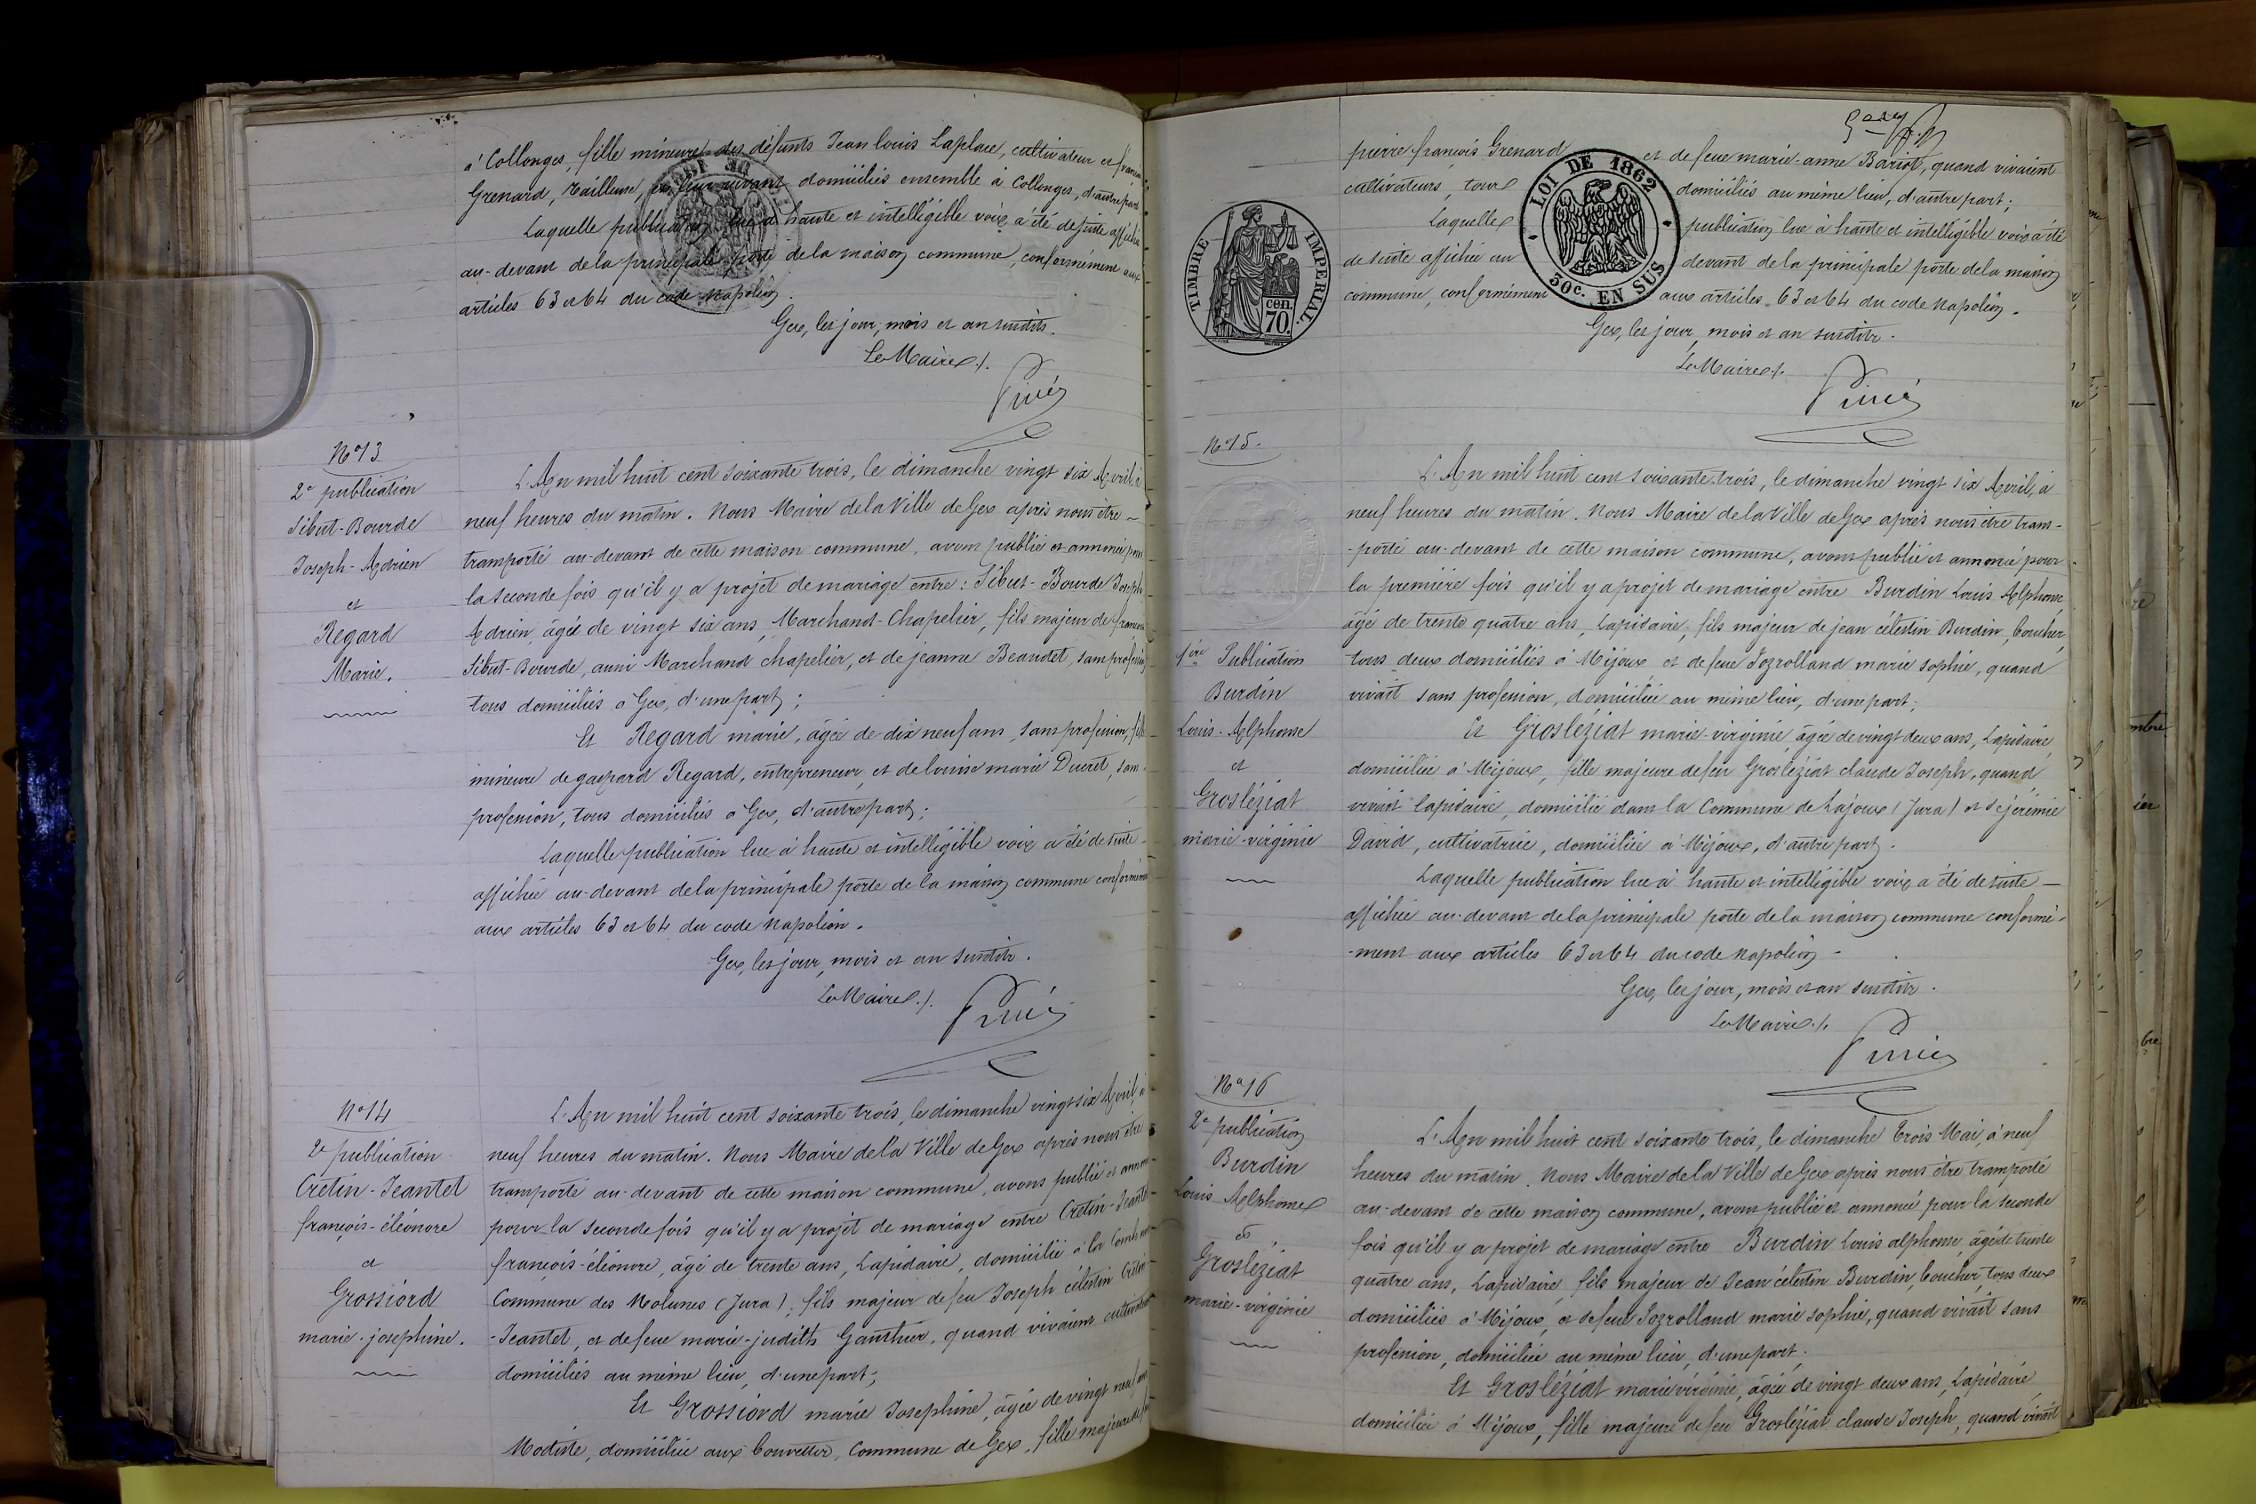 à Collonges, fille mineure des défunts Jean Louis Laplace, cultivateur et
Grenard, tailleuse, domiciliés ensemble à Collonges, d'autre part
Laquelle publication lue à haute et intelligible voix a été de suite affichée
au-devant de la principale porte de la maison commune, conformément aux
articles 63 et 64 du code Napoléon.
Gex, les jour, mois et an susdits.
Le Maire
N° 13
2e publication
Sibut-Bourde
Joseph-Adrien
et
Regard
Marie.
L'An mil huit cent soixante trois, le dimanche vingt six Avril à
neuf heures du matin. Nous Maire de la Ville de Gex après nous être
transporté au-devant de cette maison commune, avons publié et annoncé pour
la seconde fois qu'il y a projet de mariage entre : Sibut-Bourde Joseph
Adrien, âgé de vingt six ans, Marchand-Chapelier, fils majeur de
Sibut-Bourde, aussi Marchand chapelier, et de jeanne Beaudet, sans profession
tous domiciliés à Gex, d'une part ;
Et Regard marie, âgée de dix neuf ans, sans profession, fille
mineure de gaspard Regard, entrepreneur, et de louise marie Ducret, sans
profession, tous domiciliés à Gex, d'autre part ;
Laquelle publication lue à haute et intelligible voix a été de suite
affichée au-devant de la principale porte de la maison commune conformément
aux articles 63 et 64 du code Napoléon.
Gex, les jour, mois et an susdits.
Le Maire
N° 14
2e publication
Cretin-Jeantet
françois-éléonore
et
Grossiord
marie-josephine.
L'An mil huit cent soixante trois, le dimanche vingt six Avril, à
neuf heures du matin. Nous Maire de la Ville de Gex après nous être
transporté au-devant de cette maison commune, avons publié et annoncé
pour la seconde fois qu'il y a projet de mariage entre Cretin-Jeantet
françois-éléonore, âgé de trente ans, Lapidaire, domicilié à la
Commune des Molunes (Jura), fils majeur de feu Joseph célestin Cretin
-Jeantet, et de feue marie-judith Gauthier, quand vivaient cultivateurs
domiciliés au même lieu, d'une part ;
Et Grossiord marie Josephine, âgée de vingt neuf ans
Modiste, domiciliée aux Couvettes, Commune de Gex, fille majeure de feu
TIMBRE IMPERIAL.
cen. 70
LOI DE 1862
30c. EN SUS
pierre-françois Grenard et de feue marie-anne Bariot, quand vivaient
cultivateurs, tous domiciliés au même lieu, d'autre part ;
Laquelle publication lue à haute et intelligible voix a été
de suite affichée au devant de la principale porte de la maison
commune, conformément aux articles 63 et 64 du code Napoléon.
Gex, les jour, mois et an susdits.
Le Maire
N° 15.
1ère Publication
Burdin
Louis-Alphonse
et
Grosléziat
marie-virginie
L'An mil huit cent soixante-trois, le dimanche vingt six Avril, à
neuf heures du matin. Nous Maire de la Ville de Gex après nous être trans-
-porté au-devant de cette maison commune, avons publié et annoncé, pour
la première fois qu'il y a projet de mariage entre Burdin Louis Alphonse,
âgé de trente quatre ans, Lapidaire, fils majeur de jean célestin Burdin, boucher,
tous deux domiciliés à Mijoux et de feue marie sophie, quand
vivait sans profession, domiciliée au même lieu, d'une part ;
Et Grosléziat marie-virginie, âgée de vingt deux ans, Lapidaire,
domiciliée à Mijoux, fille majeure de feu Grosléziat claude Joseph, quand
vivait lapidaire, domicilié dans la Commune de Lajoux (Jura) et de jérémie
David, cultivatrice, domiciliée à Mijoux, d'autre part.
Laquelle publication lue à haute et intelligible voix a été de suite
affichée au-devant de la principale porte de la maison commune conformé-
-ment aux articles 63 et 64 du code Napoléon
Gex, les jour, mois et an susdits.
Le Maire
N° 16
2e publication
Burdin
Louis Alphonse
et
Grosléziat
marie-virginie
L'An mil huit cent soixante trois, le dimanche trois Mai, à neuf
heures du matin. Nous Maire de la Ville de Gex après nous être transporté
au-devant de cette maison commune, avons publié et annoncé pour la seconde
fois qu'il y a projet de mariage entre Burdin Louis alphonse, âgé de trente
quatre ans, Lapidaire, fils majeur de Jean célestin Burdin, boucher, tous deux
domiciliés à Mijoux, et de feue marie sophie, quand vivait sans
profession, domiciliée au même lieu, d'une part ;
Et Grosléziat marie virginie, âgée de vingt deux ans, Lapidaire
domiciliée à Mijoux, fille majeure de feu Grosléziat claude Joseph, quand vivait